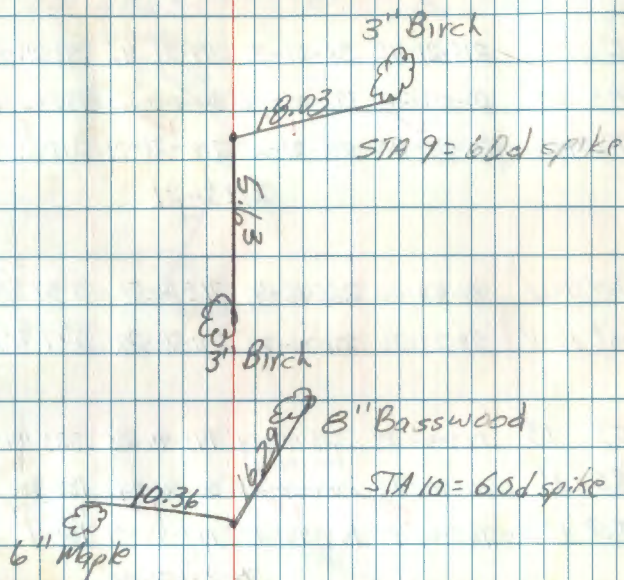 3" Birch
18.03
STA 9 = 60d spike
5.63
3" Birch
8" Basswood
16.29
STA 10 = 60d spike
10.36
6" Maple